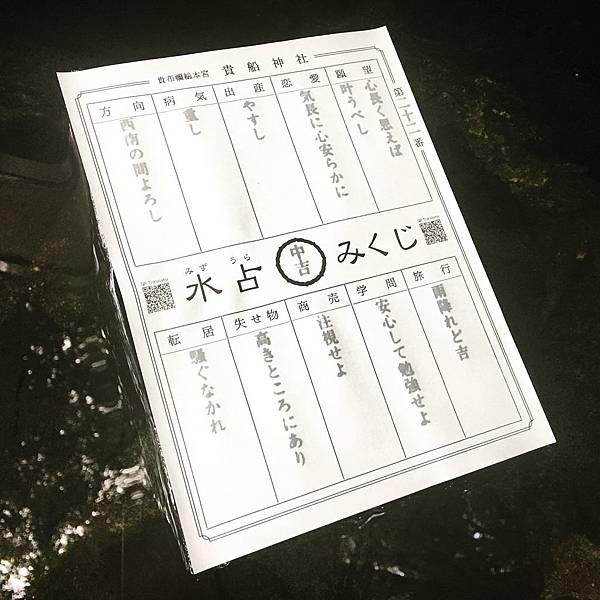 貴布禰総本宮 貴船神社
第二十二番
願望
心長く思えば
叶うべし
恋愛
気長に心安らかに
出産
やすし
病気
重し
方向
西南の間よろし
みず うら
水占 中吉 みくじ
QR Translator
QR Translator
旅行
雨降れど吉
学問
安心して勉強せよ
商売
注視せよ
失せ物
高きところにあり
転居
騒ぐなかれ